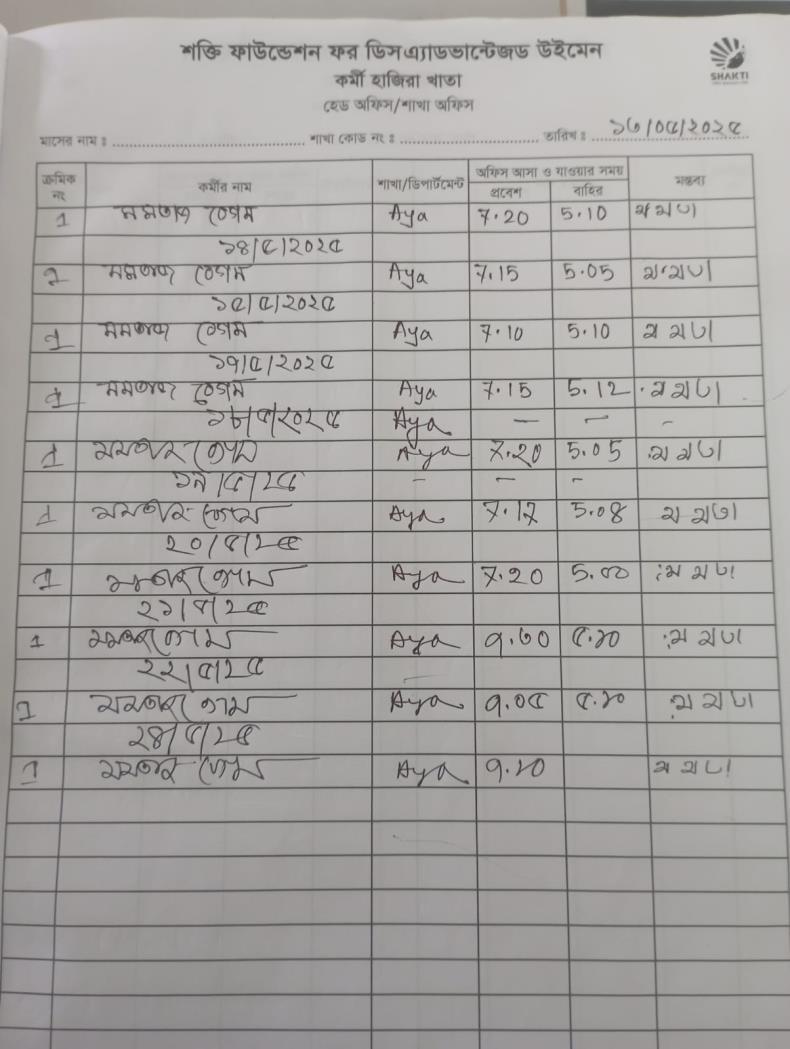 শক্তি ফাউন্ডেশন ফর ডিসএ্যাডভান্টেজড উইমেন
SHAKTI
কর্মী হাজিরা খাতা
হেড অফিস/শাখা অফিস
মাসের নাম ঃ শাখা কোড নং ঃ তারিখ ঃ ১৩/০৫/২০২৫
ক্রমিক নং কর্মীর নাম শাখা/ডিপার্টমেন্ট অফিস আসা ও যাওয়ার সময় প্রবেশ বাহির মন্তব্য
1 মমতাজ বেগম Aya 7.20 5.10
১৪/৫/২০২৫
মমতাজ বেগম Aya 7.15 5.05
১৫/৫/২০২৫
1 মমতাজ বেগম Aya 7.10 5.10
১৭/৫/২০২৫
1 মমতাজ বেগম Aya 7.15 5.12
১৮/৫/২০২৫ Aya — — -
1 মমতাজ বেগম Aya 7.20 5.05
১৯/৫/২৫ - - -
1 মমতাজ বেগম Aya 7.17 5.08
২০/৫/২৫
1 মমতাজ বেগম Aya 7.20 5.00
২১/৫/২৫
1 মমতাজ বেগম Aya ৭.৩০ ৫.১০
২২/৫/২৫
1 মমতাজ বেগম Aya ৭.০৫ ৫.১০
২৪/৫/২৫
1 মমতাজ বেগম Aya ৭.১০